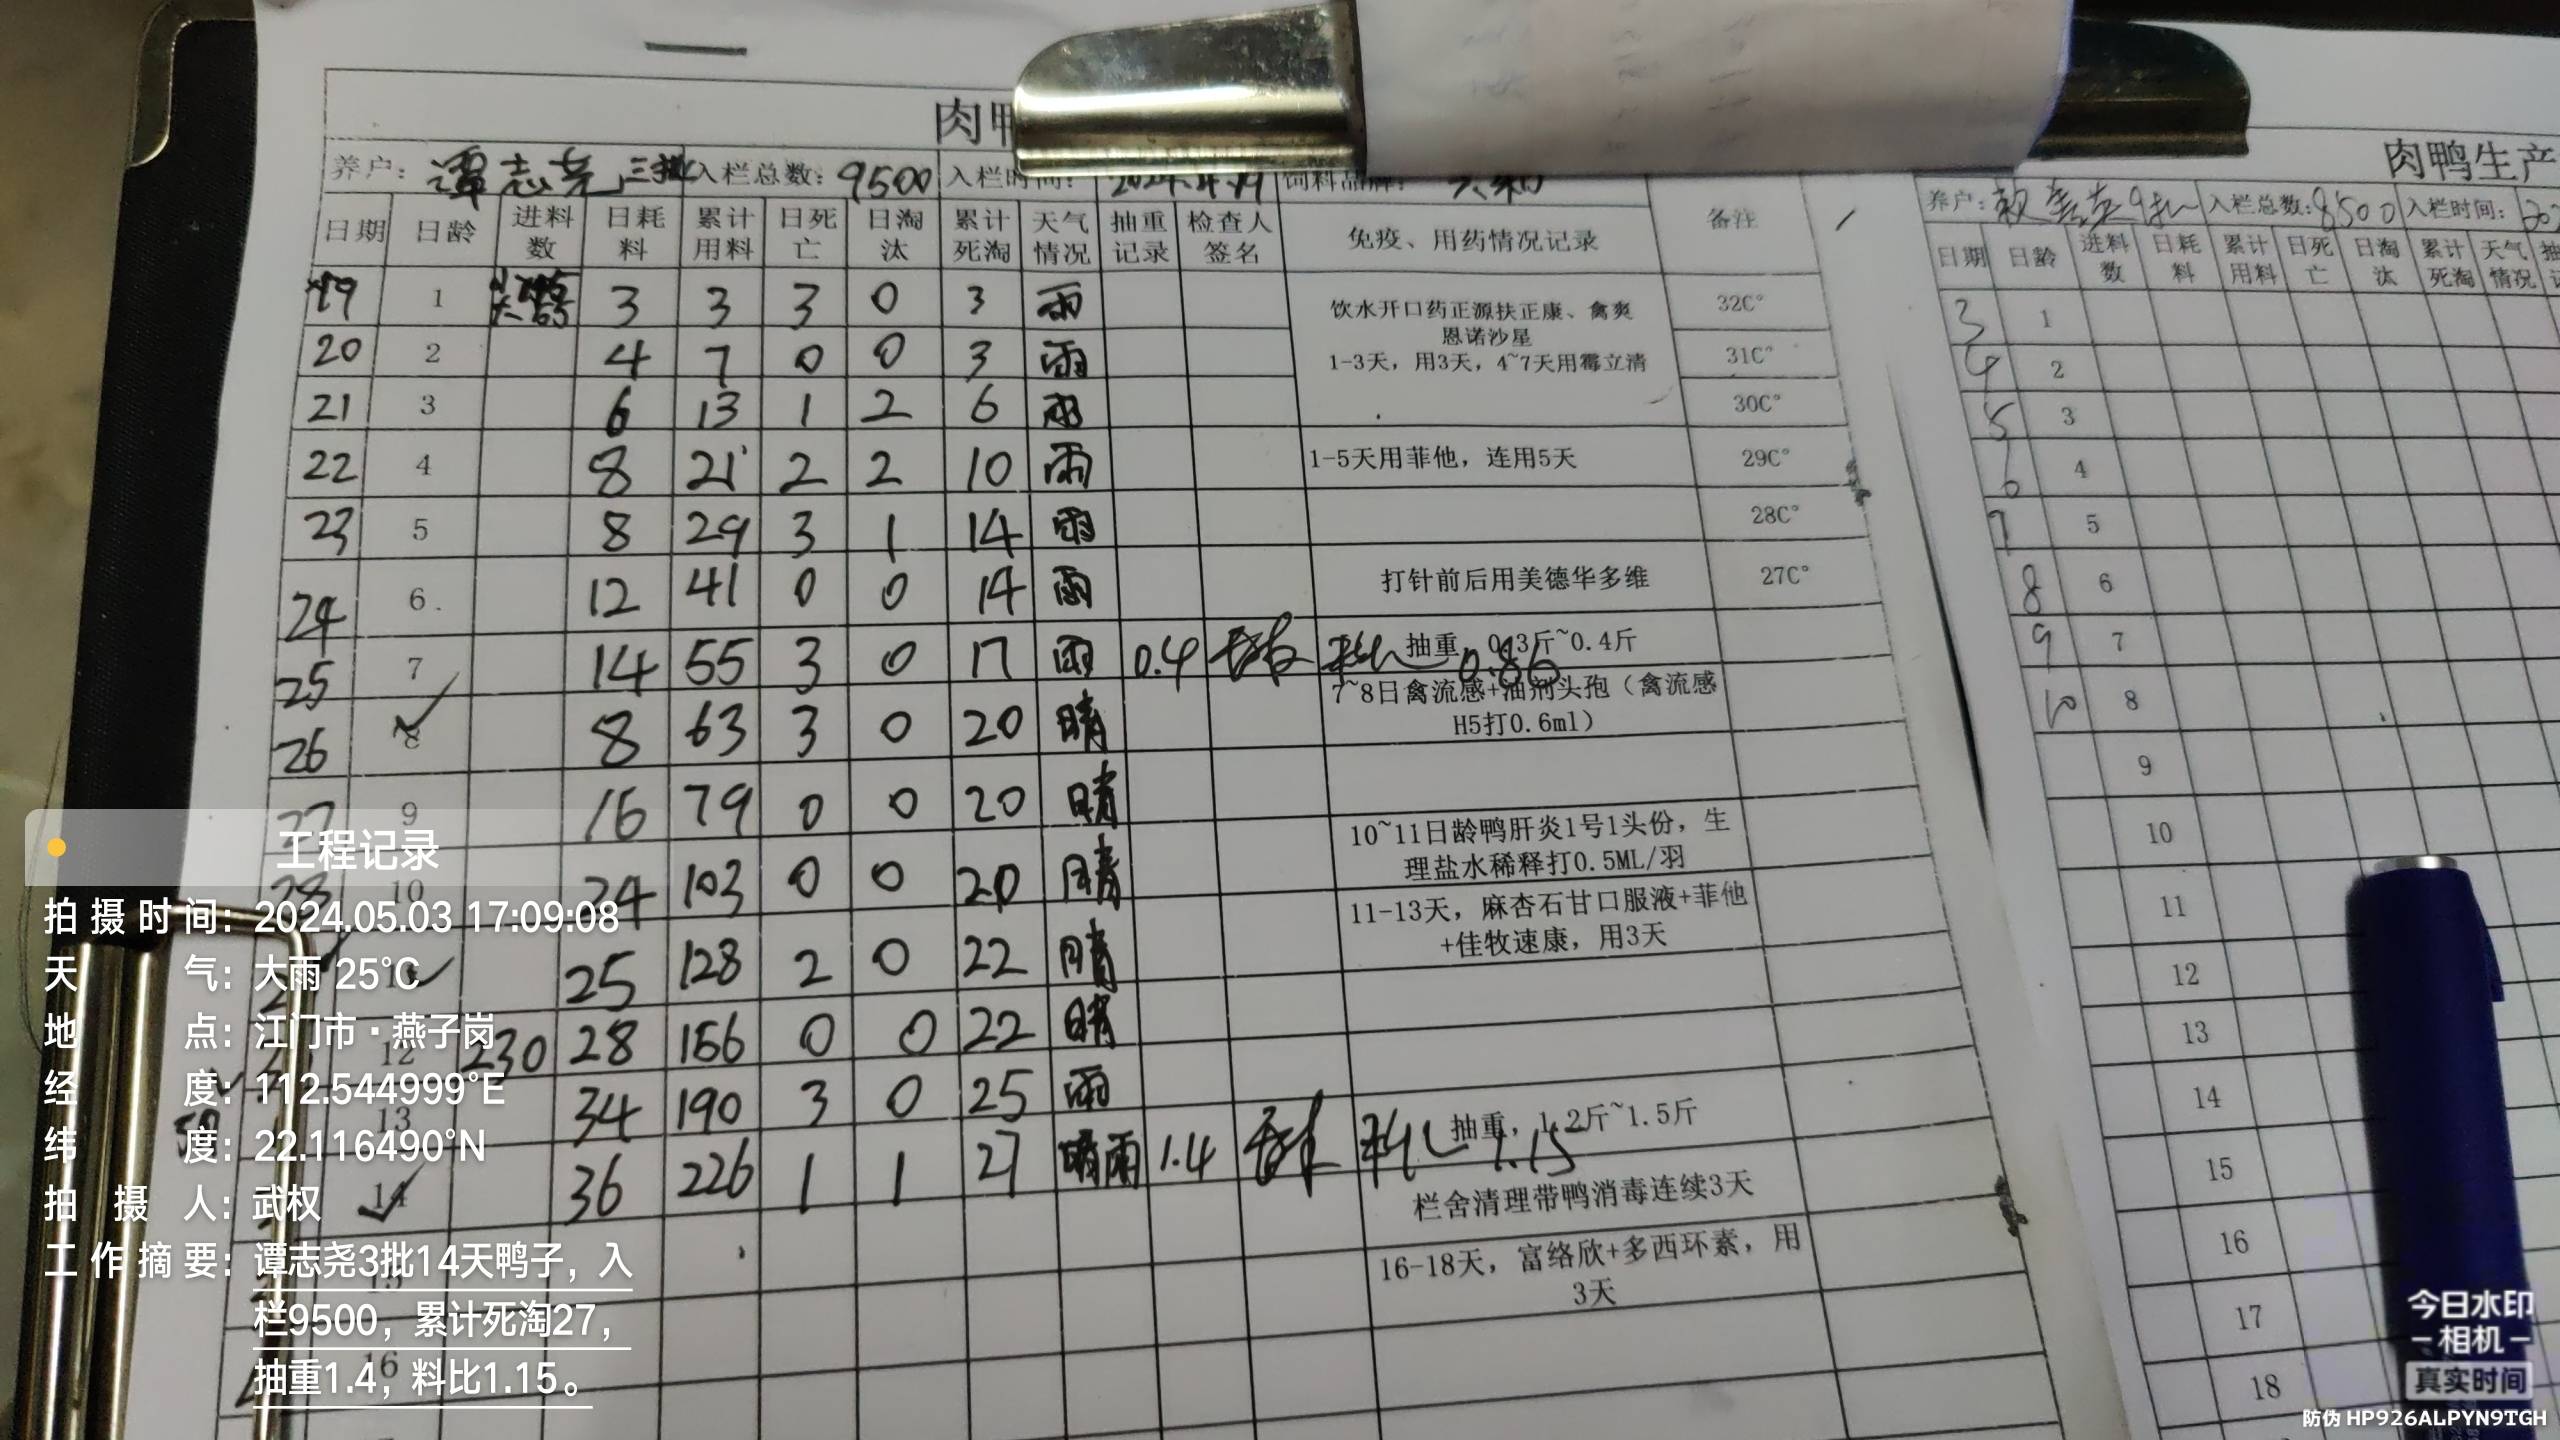 肉鸭
养户: 谭志尧 三批 入栏总数: 9500 入栏时间: 2024.4.19 饲料品牌:
日期 日龄 进料数 日耗料 累计用料 日死亡 日淘汰 累计死淘 天气情况 抽重记录 检查人签名 免疫、用药情况记录 备注
19 1 3 3 3 0 3 雨 饮水开口药正源扶正康、禽爽 32C°
恩诺沙星
20 2 4 7 0 0 3 雨 1-3天，用3天，4~7天用霉立清 31C°
21 3 6 13 1 2 6 雨 30C°
22 4 8 21 2 2 10 雨 1-5天用菲他，连用5天 29C°
23 5 8 29 3 1 14 雨 28C°
24 6 12 41 0 0 14 雨 打针前后用美德华多维 27C°
25 7 14 55 3 0 17 雨 0.4 料比 0.86 抽重，0.3斤~0.4斤
26 8 8 63 3 0 20 晴 7~8日禽流感+油剂头孢（禽流感
H5打0.6ml）
27 9 16 79 0 0 20 晴
28 10 24 103 0 0 20 晴 10~11日龄鸭肝炎1号1头份，生
理盐水稀释打0.5ML/羽
25 128 2 0 22 晴 11-13天，麻杏石甘口服液+菲他
+佳牧速康，用3天
12 230 28 156 0 0 22 晴
13 34 190 3 0 25 雨
14 36 226 1 1 27 晴雨 1.4 料比 1.15 抽重，1.2斤~1.5斤
栏舍清理带鸭消毒连续3天
15
16-18天，富络欣+多西环素，用
3天
16
肉鸭生产
养户: 入栏总数: 8500 入栏时间: 202
日期 日龄 进料数 日耗料 累计用料 日死亡 日淘汰 累计死淘 天气情况
3 1
4 2
5 3
6 4
7 5
8 6
9 7
10 8
9
10
11
12
13
14
15
16
17
18
工程记录
拍摄时间: 2024.05.03 17:09:08
天气: 大雨 25℃
地点: 江门市·燕子岗
经度: 112.544999°E
纬度: 22.116490°N
拍摄人: 武权
工作摘要: 谭志尧3批14天鸭子，入
栏9500，累计死淘27，
抽重1.4，料比1.15。
今日水印
-相机-
真实时间
防伪 HP926ALPYN9TGH